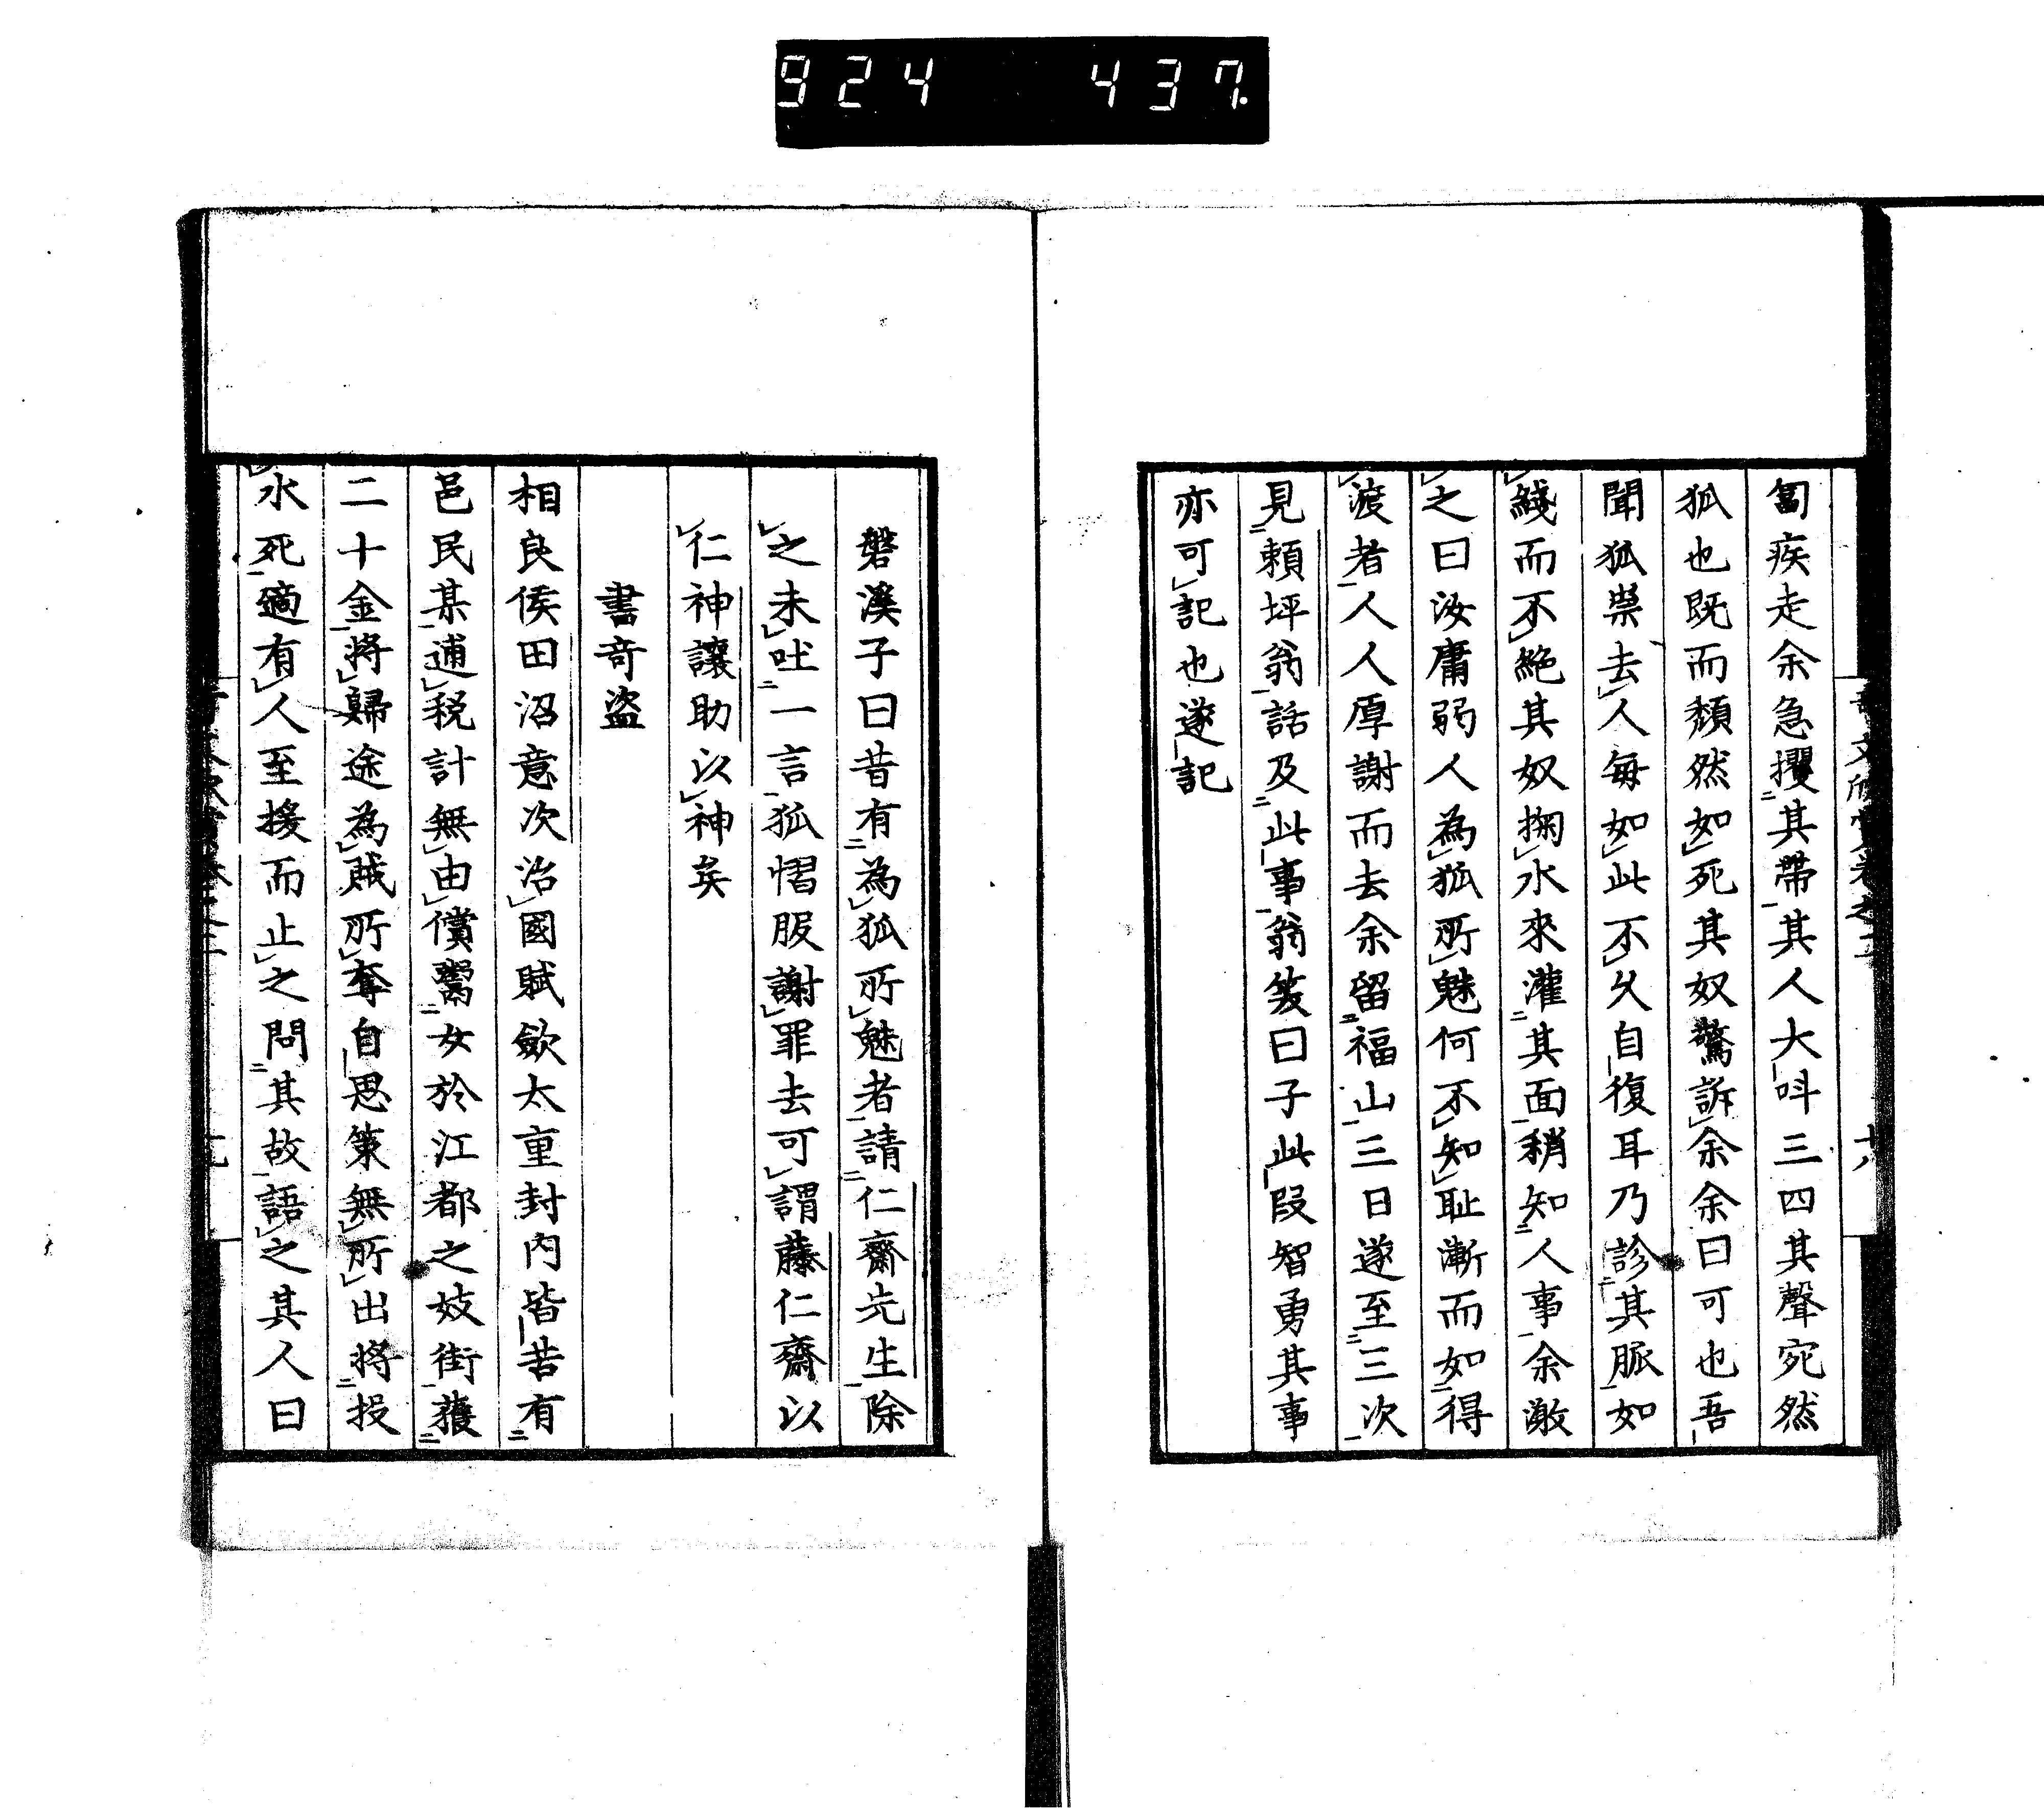 924 437
匐疾走余急攫其帶其人大呌三四其聲宛然
狐也既而頹然如死其奴驚訴余余曰可也吾
聞狐祟去人每如此不久自復耳乃診其脈如
綫而不絶其奴掬水來灌其面稍知人事余激
之曰汝庸弱人為狐所魅何不知耻漸而如得
渡者人人厚謝而去余留福山三日遂至三次
見頼坪翁話及此事翁笑曰子此段智勇其事
亦可記也遂記
磐溪子曰昔有為狐所魅者請仁齋先生除
之未吐一言狐慴服謝罪去可謂藤仁齋以
仁神讓助以神矣
書奇盗
相良侯田沼意次治國賦歛太重封内皆苦有
邑民某逋税計無由償鬻女於江都之妓街獲
二十金將歸途為賊所奪自思策無所出將投
水死適有人至援而止之問其故語之其人曰